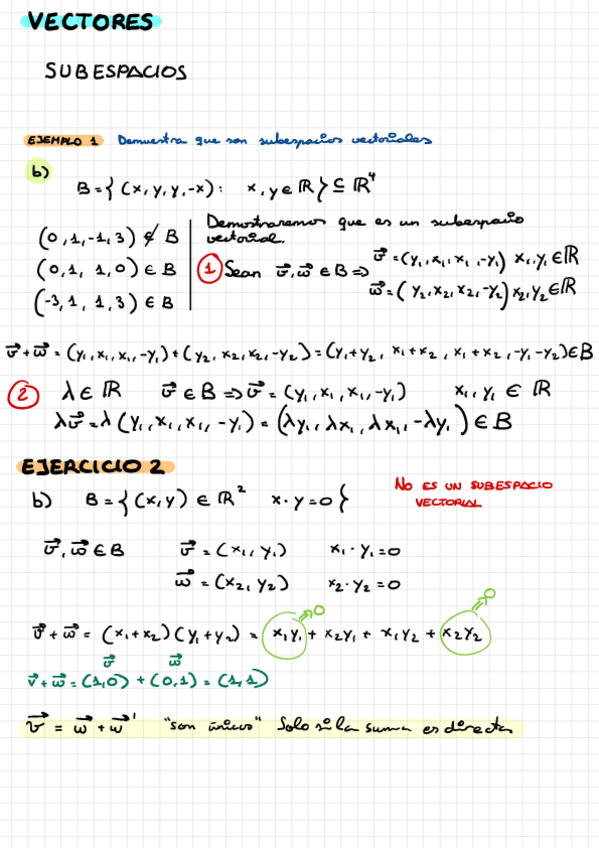 VECTORES
SUBESPACIOS
EJEMPLO 1 Demuestra que son subespacios vectoriales
b)
B={(x,y,y,-x): x,y∈ℝ}⊆ℝ⁴
(0,1,-1,3)∉B
(0,1,1,0)∈B
(-3,1,1,3)∈B
Demostraremos que es un subespacio
vectorial.
① Sean v⃗,w⃗∈B⇒ v⃗=(y₁,x₁,x₁,-y₁) x₁,y₁∈ℝ
w⃗=(y₂,x₂,x₂,-y₂) x₂,y₂∈ℝ
v⃗+w⃗=(y₁,x₁,x₁,-y₁)+(y₂,x₂,x₂,-y₂)=(y₁+y₂, x₁+x₂, x₁+x₂, -y₁-y₂)∈B
② λ∈ℝ v⃗∈B⇒v⃗=(y₁,x₁,x₁,-y₁) x₁,y₁∈ℝ
λv⃗=λ(y₁,x₁,x₁,-y₁)=(λy₁,λx₁,λx₁,-λy₁)∈B
EJERCICIO 2
b) B={(x,y)∈ℝ² x·y=0}
NO ES UN SUBESPACIO
VECTORIAL
v⃗,w⃗∈B v⃗=(x₁,y₁) x₁·y₁=0
w⃗=(x₂,y₂) x₂·y₂=0
v⃗+w⃗=(x₁+x₂)(y₁+y₂)=x₁y₁→0+x₂y₁+x₁y₂+x₂y₂→0
v⃗ w⃗
v⃗+w⃗=(1,0)+(0,1)=(1,1)
v⃗=w⃗+w⃗' "son únicos" Solo si la suma es directa